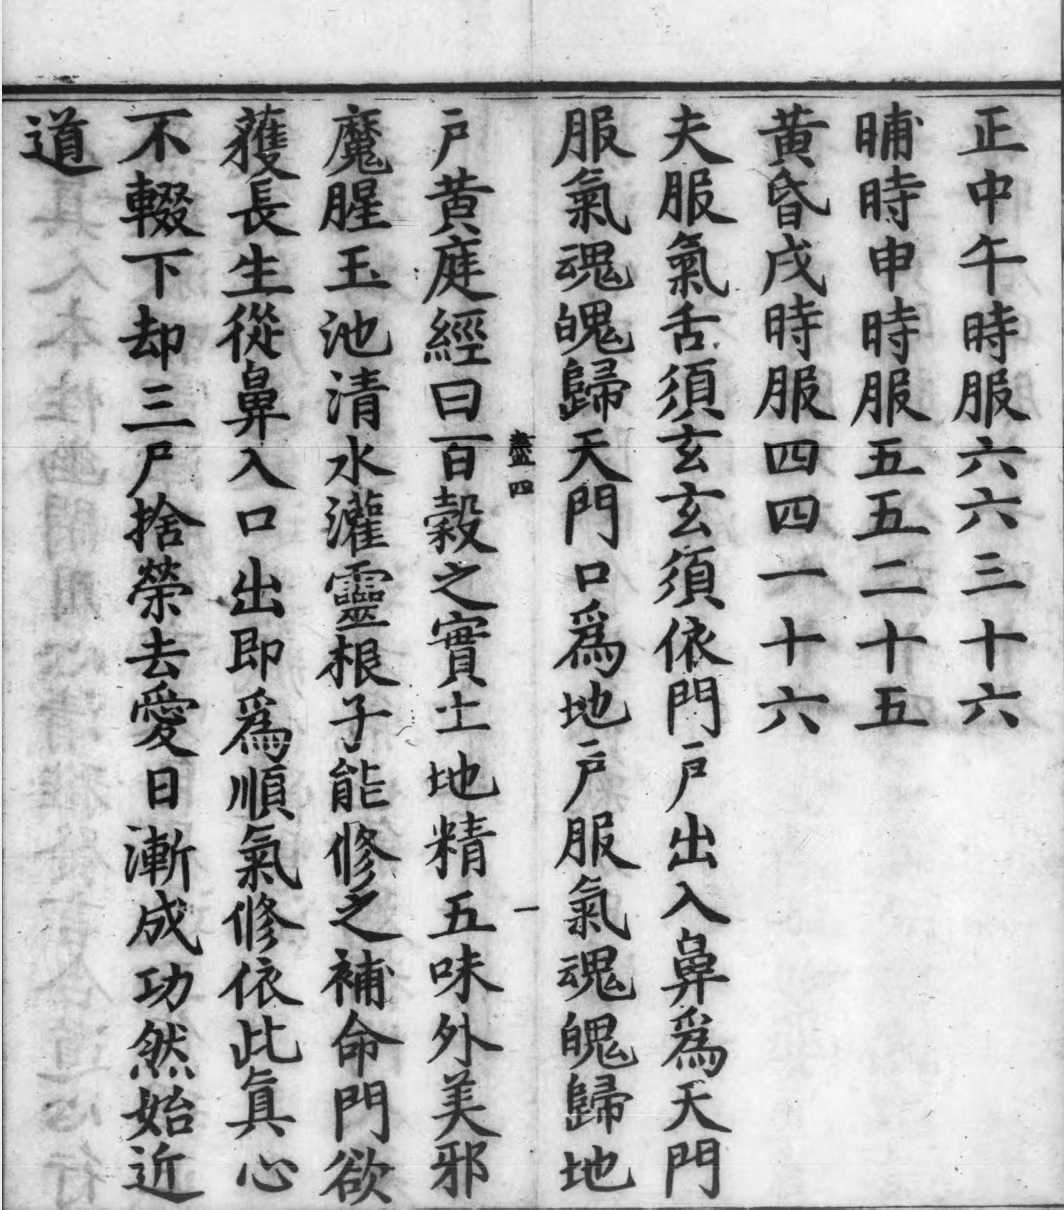 正中午時服六六三十六
晡時申時服五五二十五
黄昏戌時服四四一十六
夫服氣舌須玄玄須依門戶出入鼻爲天門
服氣魂魄歸天門口爲地戶服氣魂魄歸地
盡四
一
戶黄庭經曰百穀之實土地精五味外美邪
魔腥玉池清水灌靈根子能修之補命門欲
獲長生從鼻入口出即爲順氣修依此真心
不輟下却三尸捨榮去愛日漸成功然始近
道